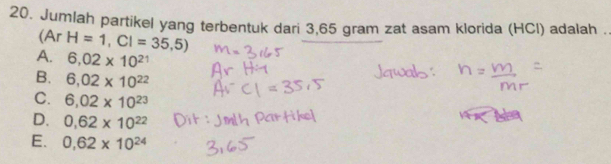 20. Jumlah partikel yang terbentuk dari 3,65 gram zat asam klorida (HCl) adalah ..
(Ar H = 1, Cl = 35,5)
A. 6,02 x 10²¹
B. 6,02 x 10²²
C. 6,02 x 10²³
D. 0,62 x 10²²
E. 0,62 x 10²⁴
m = 3,65
Ar H=1
Ar Cl = 35,5
Dit : Jmlh Partikel
3,65
Jawab : n = m/mr =